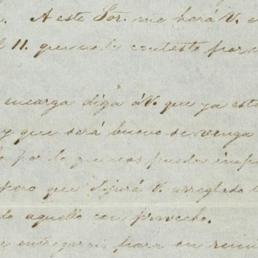 A este Sor. no hará V. e
l 11. que no le contesto por
encarga diga á V. que ya esta
y que será bueno se venga
lo por lo que nos pueda imp
pero que dejará V. arreglado
do aquello con provecho.
entregar para su remi